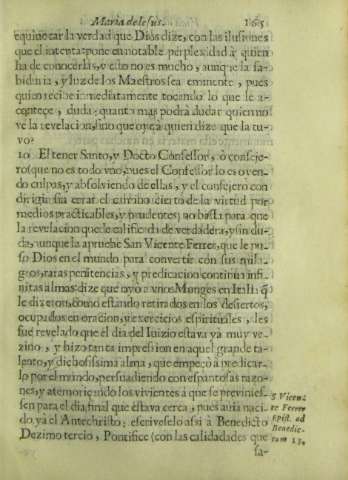 Maria de Iesus. 165
equiuocar la verdad que Dios dize, con las ilusiones
que el intenta, pone en notable perplexidad à quien
ha de conocerlas, y esto no es mucho, aunque la sa-
biduria, y luz de los Maestros sea eminente, pues
quien recibe inmediatamente tocando lo que le a-
contece, duda; quanto mas podrà dudar quien no
ve la reuelacion, sino que oye à quien dize que la tu-
vo?
10 El tener Santo, y Docto Confessor, ò conseje-
ro (que no es todo vno, pues el Confessor lo es oyen-
do culpas, y absolviendo de ellas, y el consejero con
dirigir sin errar el camino cierto de la virtud por
medios practicables, y prudentes) no basta para que
la reuelacion quede calificada de verdadera, y sin du-
da, aunque la apruebe San Vicente Ferrer, que le pu-
so Dios en el mundo para convertir con sus mila-
gros, raras penitencias, y predicacion continua infi-
nitas almas: dize que oyò a vnos Monges en Italia q̃
le dixeron, como estando retirados en los desiertos,
ocupados en oracion, y exercicios espirituales, les
fue revelado que el dia del Iuizio estava yà muy ve-
zino, y hizo tanta impression en aquel grande ta-
lento, y dichosissima alma, que empeçò a predicar-
lo por el mundo, persuadiendo con espantosas razo-
nes, y atemorizando los vivientes à que se previnies-
sen para el dia final que estava cerca, pues avia naci-
do yà el Antechristo; escriveselo assi à Benedicto
Dezimo tercio, Pontifice (con las calidades que
S Vicent
te Ferrer
Epist. ad
Benedic-
tum 13.
fa-